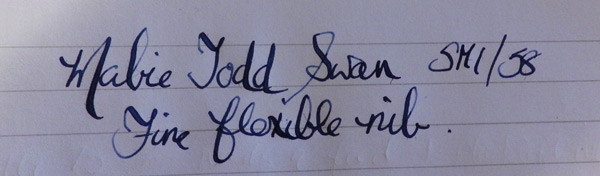 Mabie Todd Swan SM1/58
Fine flexible nib.